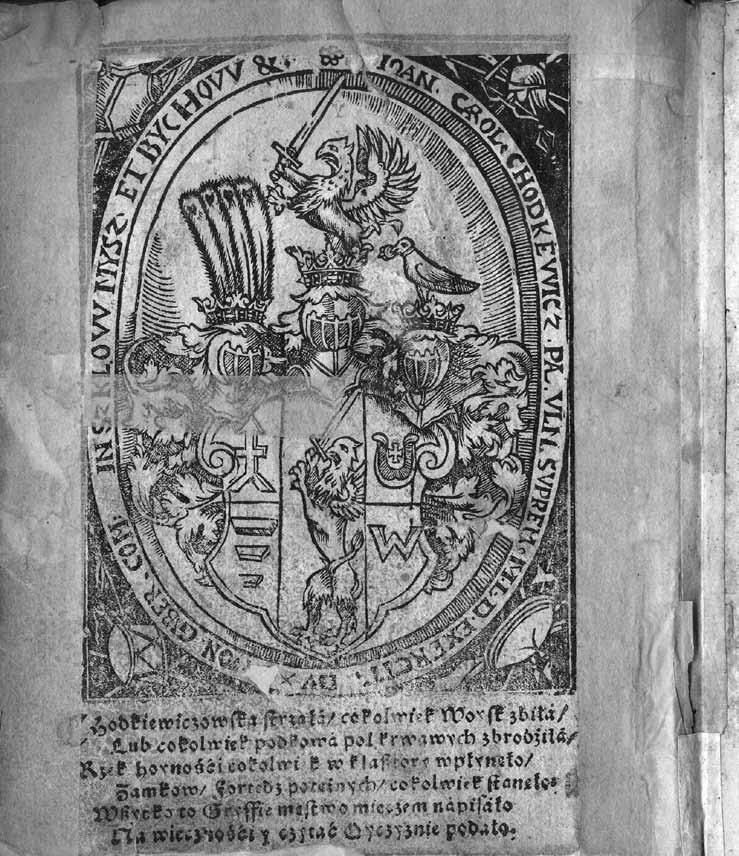 IOAN. CROL. CHODKEWICZ. PA. VLN. SVPREM. MI. D. EXERCIT. DVX. GVBER. COM. IN SZKLOVV MYSZ. ET BYCHOVV &.
W
Chodkiewiczowska strzała/ cokolwiek Woysk zbiła/
Lub cokolwiek podkowa pol krwawych zbrodziła/
Rzek hoynośći cokolwiek w klasztory wpłynęło/
Zamkow/ Fortedz potężnych/ cokolwiek stanęło:
Wszytko to Gryffie męstwo mieczem napisáło
Na wiecznośći y czytáć Oyczyznie podało.